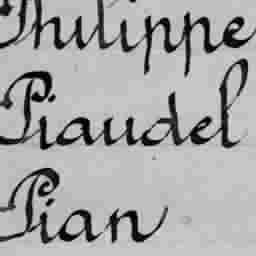 Philippe
Piaudel
Pian